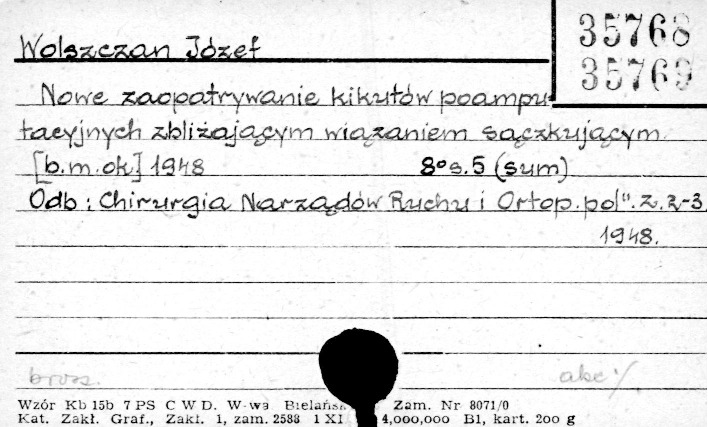 35768
35769
Wolszczan Józef
Nowe zaopatrywanie kikutów poampu-
tacyjnych zbliżającym wiązaniem sączkującym.
[b.m.ok] 1948 8° s.5 (sum)
Odb: Chirurgia Narządów Ruchu i Ortop.pol". Z. 2-3.
1948.
brosz. akc ./.
Wzór Kb 15b 7 PS C W D. W-wa Zam. Nr 8071/0
Kat. Zakł. Graf., Zakł. 1, zam. 2588 1 XI 4,000,000 B1, kart. 200 g